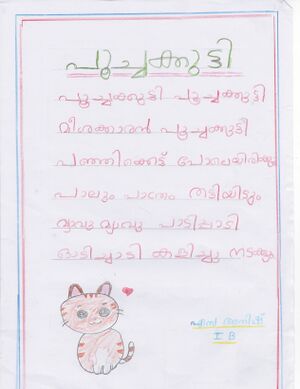 പൂച്ചക്കുട്ടി
പൂച്ചക്കുട്ടി പൂച്ചക്കുട്ടി
മീശക്കാരൻ പൂച്ചക്കുട്ടി
പഞ്ഞിക്കെട്ട് പോലെയിരിക്കും
പാലും പാത്രം തട്ടിയിട്ടും
മ്യാവു മ്യാവു പാടിപ്പാടി
ഓടിച്ചാടി കളിച്ചു നടക്കും
I B